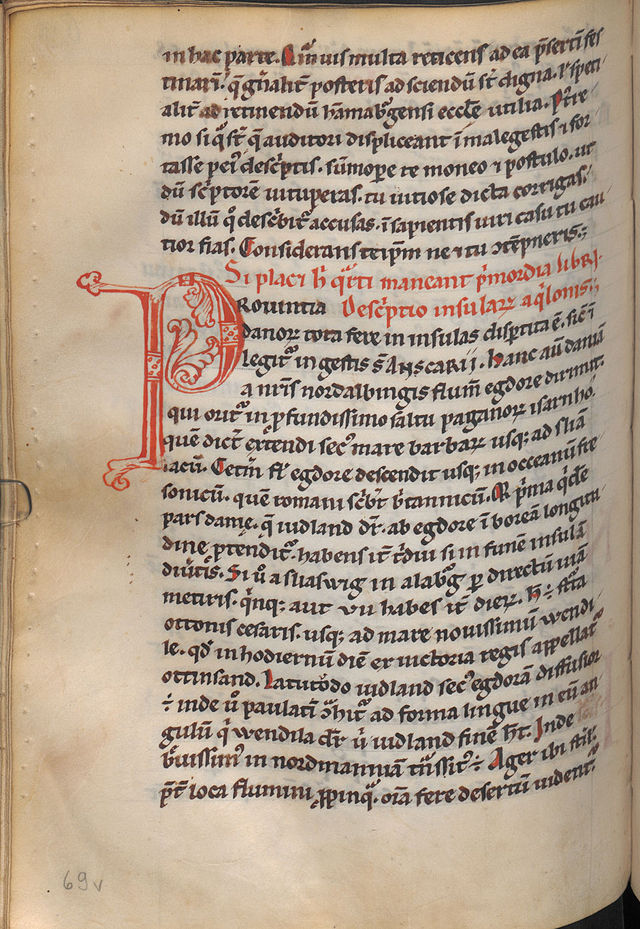 in hac parte. Qm̄ uis multa reticens ad ea p̄sertī fes
tinarī. q̄ gn̄alit᷑ posteris ad sciendū st̄ digna. ł speti
alit᷑ ad retinendū ham̄abꝰgensi eccłe utilia. P̄t̓re
mo si q̄ st̄ q̄ auditori displiceant ī male gestis ⁊ for
tasse pei᷑ desc̓ptis. sūmoꝑe te moneo ⁊ postulo. ut
dū sc̓ptorē uituperas. tu uitiose dicta corrigas.
dū illū q̄ desc̓bit᷑ accusas. ī sapientis uiri casu tu cau
tior fias. Considerans teip̄m ne ⁊ tu ꝯtēpneris.
Si placi h̄ qͣrti maneant p̓mordia libri.
Prouintia Desc̓ptio insularꝝ aq̓lonis.
danorꝝ tota fere in insulas disp̱tita ē. sic̄ ī
legit᷑ in gestis s̄ Anscarii. Hanc aū daniā
a nr̄is nordalbingis flum̄ egdore dirimit.
qui orit᷑ in ꝓfundissimo saltu paganorꝝ isarnho.
quē dict̄ extendi secꝰ mare barbarꝝ usqꝫ ad slia
lacū. Cet̓m fł egdore descendit usqꝫ in occeanū fre
sonicū. quē romani sc̓bt᷑ b̓tannicū. Et p̓ma q̓dē
pars danie. q̄ iudland dr̄. ab egdore ī boreā longitu
dine p̱tendit᷑. habens it̄ t̓dui si in funē insulā
diu̓tis. Si u̓ a sliaswig in alabꝰg ꝑ directū uiā
metiris. q̓nqꝫ aut vii habes it̄ dierꝝ. h̄ ÷ strͣta
ottonis cesaris. usqꝫ ad mare nouissimū wendi
le. qd̓ in hodiernū diē ex uictoria regis appellat᷑
ottinsand. Latitudo iudland secꝰ egdorā diffusior
÷ inde u̓ paulatī ꝯ̄hit᷑ ad forma lingue in eū an
gulū q̓ wendila dr̄ u̓ iudland finē h̄t. Inde
b̓uissimꝰ in nordmanniā tn̄ssitꝰ ÷ Ager ibi steril̓
p̄t̄ loca flumini ꝓpinqͣ. oīa fere desertū uident᷑.
69v